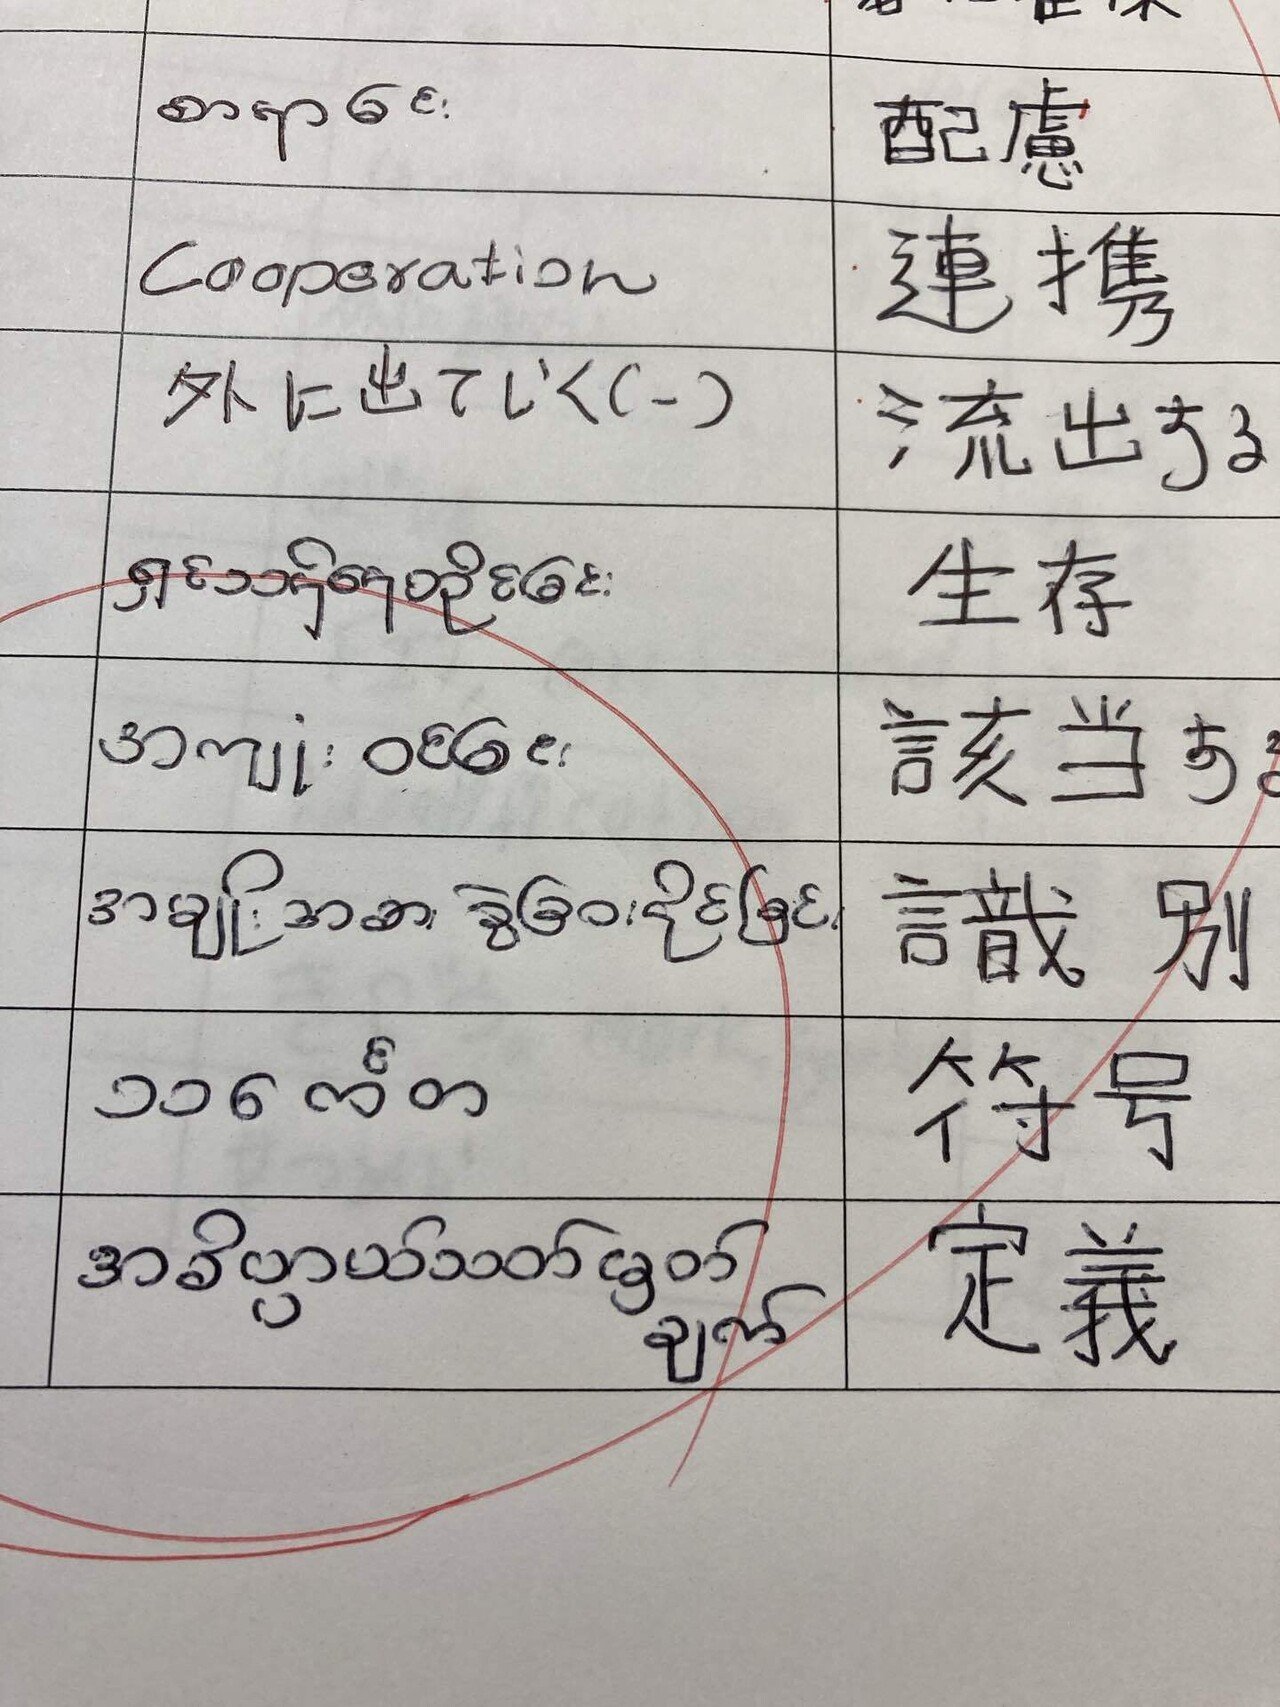 စာရာခင်း
配慮
Cooperation
連携
外に出ていく(-)
流出する
ရှင်သန်နေထိုင်ခင်း
生存
အကျုံးဝင်ခင်း
該当する
အမျိုးအစား ခွဲခြားနိုင်ခြင်း
識別
သင်္ကေတ
符号
အဓိပ္ပာယ်သတ်မှတ်
ချက်
定義